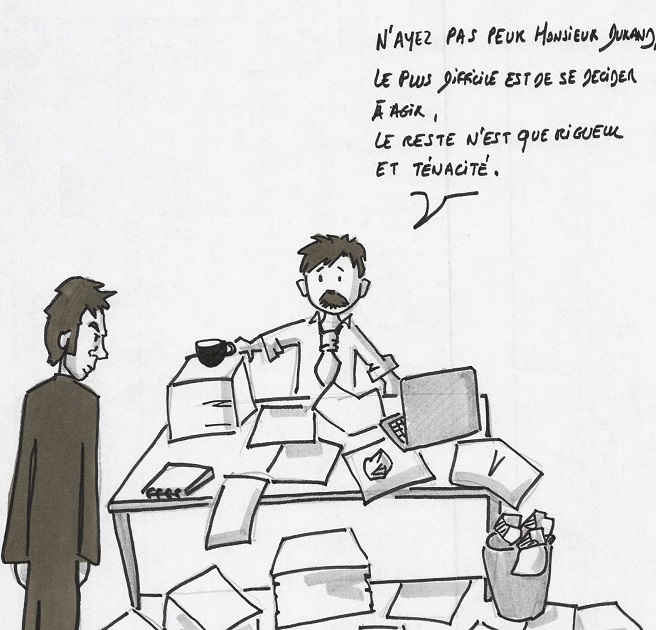 N'AYEZ PAS PEUR MONSIEUR DURAND,
LE PLUS DIFFICILE EST DE SE DECIDER
À AGIR,
LE RESTE N'EST QUE RIGUEUR
ET TÉNACITÉ.